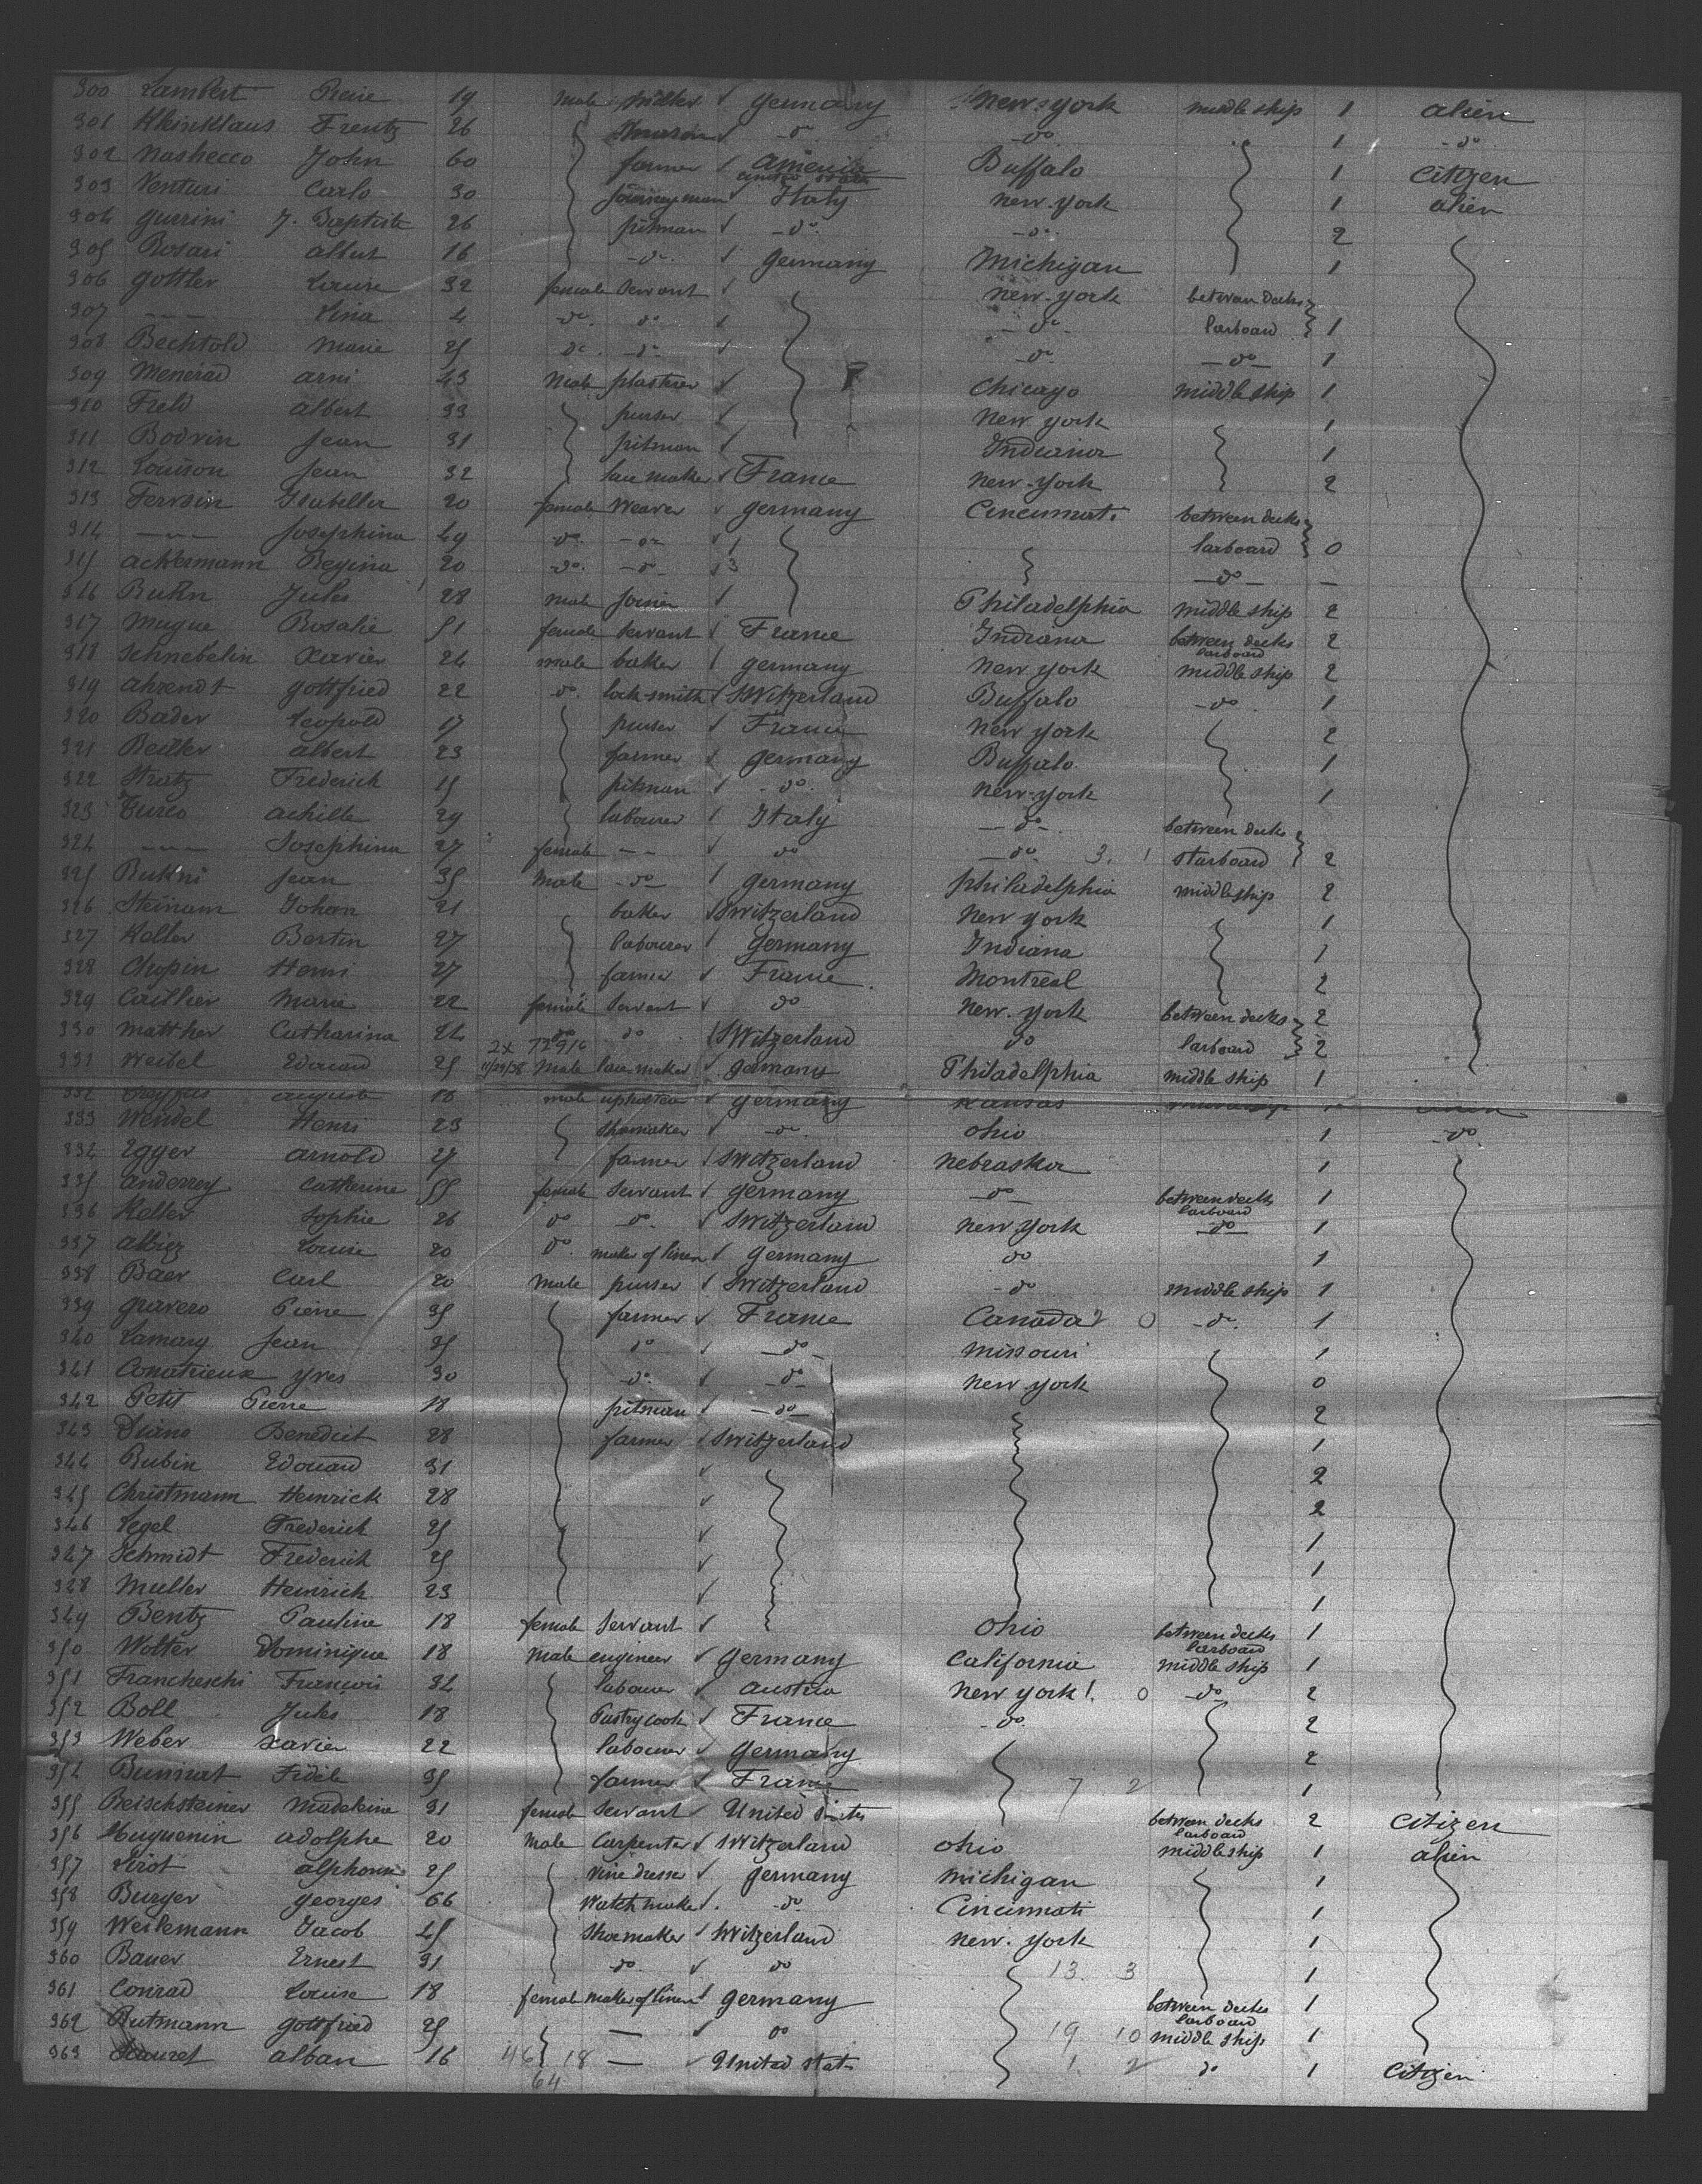 300 Lambert Pierre 19 male miller √ Germany New-york middle ship 1 alien
301 Kleinklaus Frentz 26 √ -do- -do- 1 -do-
302 Nashecco John 60 farmer √ America united states Buffalo 1 Citizen
303 Venturi Carlo 30 journeyman √ Italy new-york 1 alien
304 guerini J. Baptiste 26 pitman √ -do- -do- 2
305 Rosari albert 16 -do- √ Germany Michigan 1
306 gottler Louise 32 female servant √ new-york between decks
307 --- Lina 4 do. do √ -do- larboard 1
308 Bechtold Marie 25 do. -do- √ -do- -do- 1
309 Menerad arni 43 Male plastrer √ Chicago middle ship 1
310 Feld albert 33 purser √ New york 1
311 Bodvin Jean 31 pitman √ Indiana 1
312 Louison Jean 32 lace maker √ France new-york 2
313 Fervoin Isabella 20 female Weaver √ germany Cincinnati between decks
314 --- Josephina 49 do. -do- √ 1 larboard 0
315 ackermann Regina 20 -do- -do- √ 3 -do- —
316 Buhn Jules 28 male joiner √ Philadelphia middle ship 2
317 Mugue Rosalie 51 female servant √ France Indiana between decks larboard 2
318 Schnebelin Xavier 24 male baker √ germany new york middle ship 2
319 ahrendt gottfried 22 do. lock-smith √ Switzerland Buffalo -do- 1
320 Bader Leopold 17 purser √ France new york 2
321 Beiller albert 23 farmer √ germany Buffalo 1
322 Stratz Frederick 15 pitman √ -do- new-york 1
323 Turco achille 29 labourer √ Italy -do- between decks
324 --- Josephina 27 female -- √ do -do- 3. 1 starboard 2
325 Rukni Jean 35 Male -do- √ germany philadelphia middleship 2
326 Steinam Johan 21 baker √ Switzerland new york 1
327 Keller Bertin 27 labourer √ Germany Indiana 1
328 Chupin Henri 27 farmer √ France Montreal 2
329 Caillier Marie 22 female servant √ do new-york between decks 2
330 Matther Catharina 24 do do √ Switzerland do larboard 2
2x 72916
331 Weibel Edouard 25 11/29/38 Male lace-maker √ germany Philadelphia middle ship 1
332 Dreyfus auguste 18 male upholster √ germany Kansas alien
333 Wendel Henri 23 shoemaker √ -do- Ohio 1 -do-
334 Egyer arnold 27 farmer √ Switzerland Nebraska 1
335 anderrey Catherine 55 female servant √ germany -do- between decks larboard 1
336 Keller Sophie 26 do do. √ Switzerland new york -do- 1
337 albiez Louise 20 do. maker of linen √ germany do 1
338 Baer Carl 20 male purser √ Switzerland -do middle ship 1
339 gravero Pierre 35 farmer √ France Canada 2 0 -do- 1
340 Lamary Jean 35 do √ -do- Missouri 1
341 Conatrieux yves 30 -do- √ -do- new york 0
342 Petit Pierre 18 pitman √ -do- 2
343 Diano Benedict 28 farmer √ Switzerland 1
344 Rubin Edouard 31 √ 2
345 Christmann Heinrick 28 √ 2
346 Legel Frederick 25 √ 1
347 Schmidt Frederick 25 √ 1
328 Muller Heinrich 23 √ 1
349 Bentz Pauline 18 female servant √ Ohio between decks larboard 1
350 Wolter Dominique 18 male engineer √ Germany California middle ship 1
351 Francheschi François 34 labourer √ austria New york 1. 0 -do- 2
352 Boll Jules 18 Pastry cook √ France -do- 2
353 Weber Xavier 22 labourer √ Germany 2
354 Bumirat Fidèle 35 farmer √ France 7 2 1
355 Beischsteiner Madeleine 31 female servant √ United States between decks larboard 2 Citizen
356 Huguenin adolphe 20 Male Carpenter √ Switzerland ohio middle ship 1 alien
357 Lirot alphonse 25 vine dresser √ germany Michigan 1
358 Burger georges 66 Watch maker √ -do- Cincinnati 1
359 Weilemann Jacob 45 Shoemaker √ Switzerland new-york 1
360 Bauer Ernest 31 -do- √ do 13. 3 1
361 Conrad Louise 18 female maker of linen √ germany between decks larboard 1
362 Butmann gottfried 25 — √ do 19 10 middle ship 1
363 alban 16 46 18 — √ United stat- 1. 2 do 1 Citizen
64